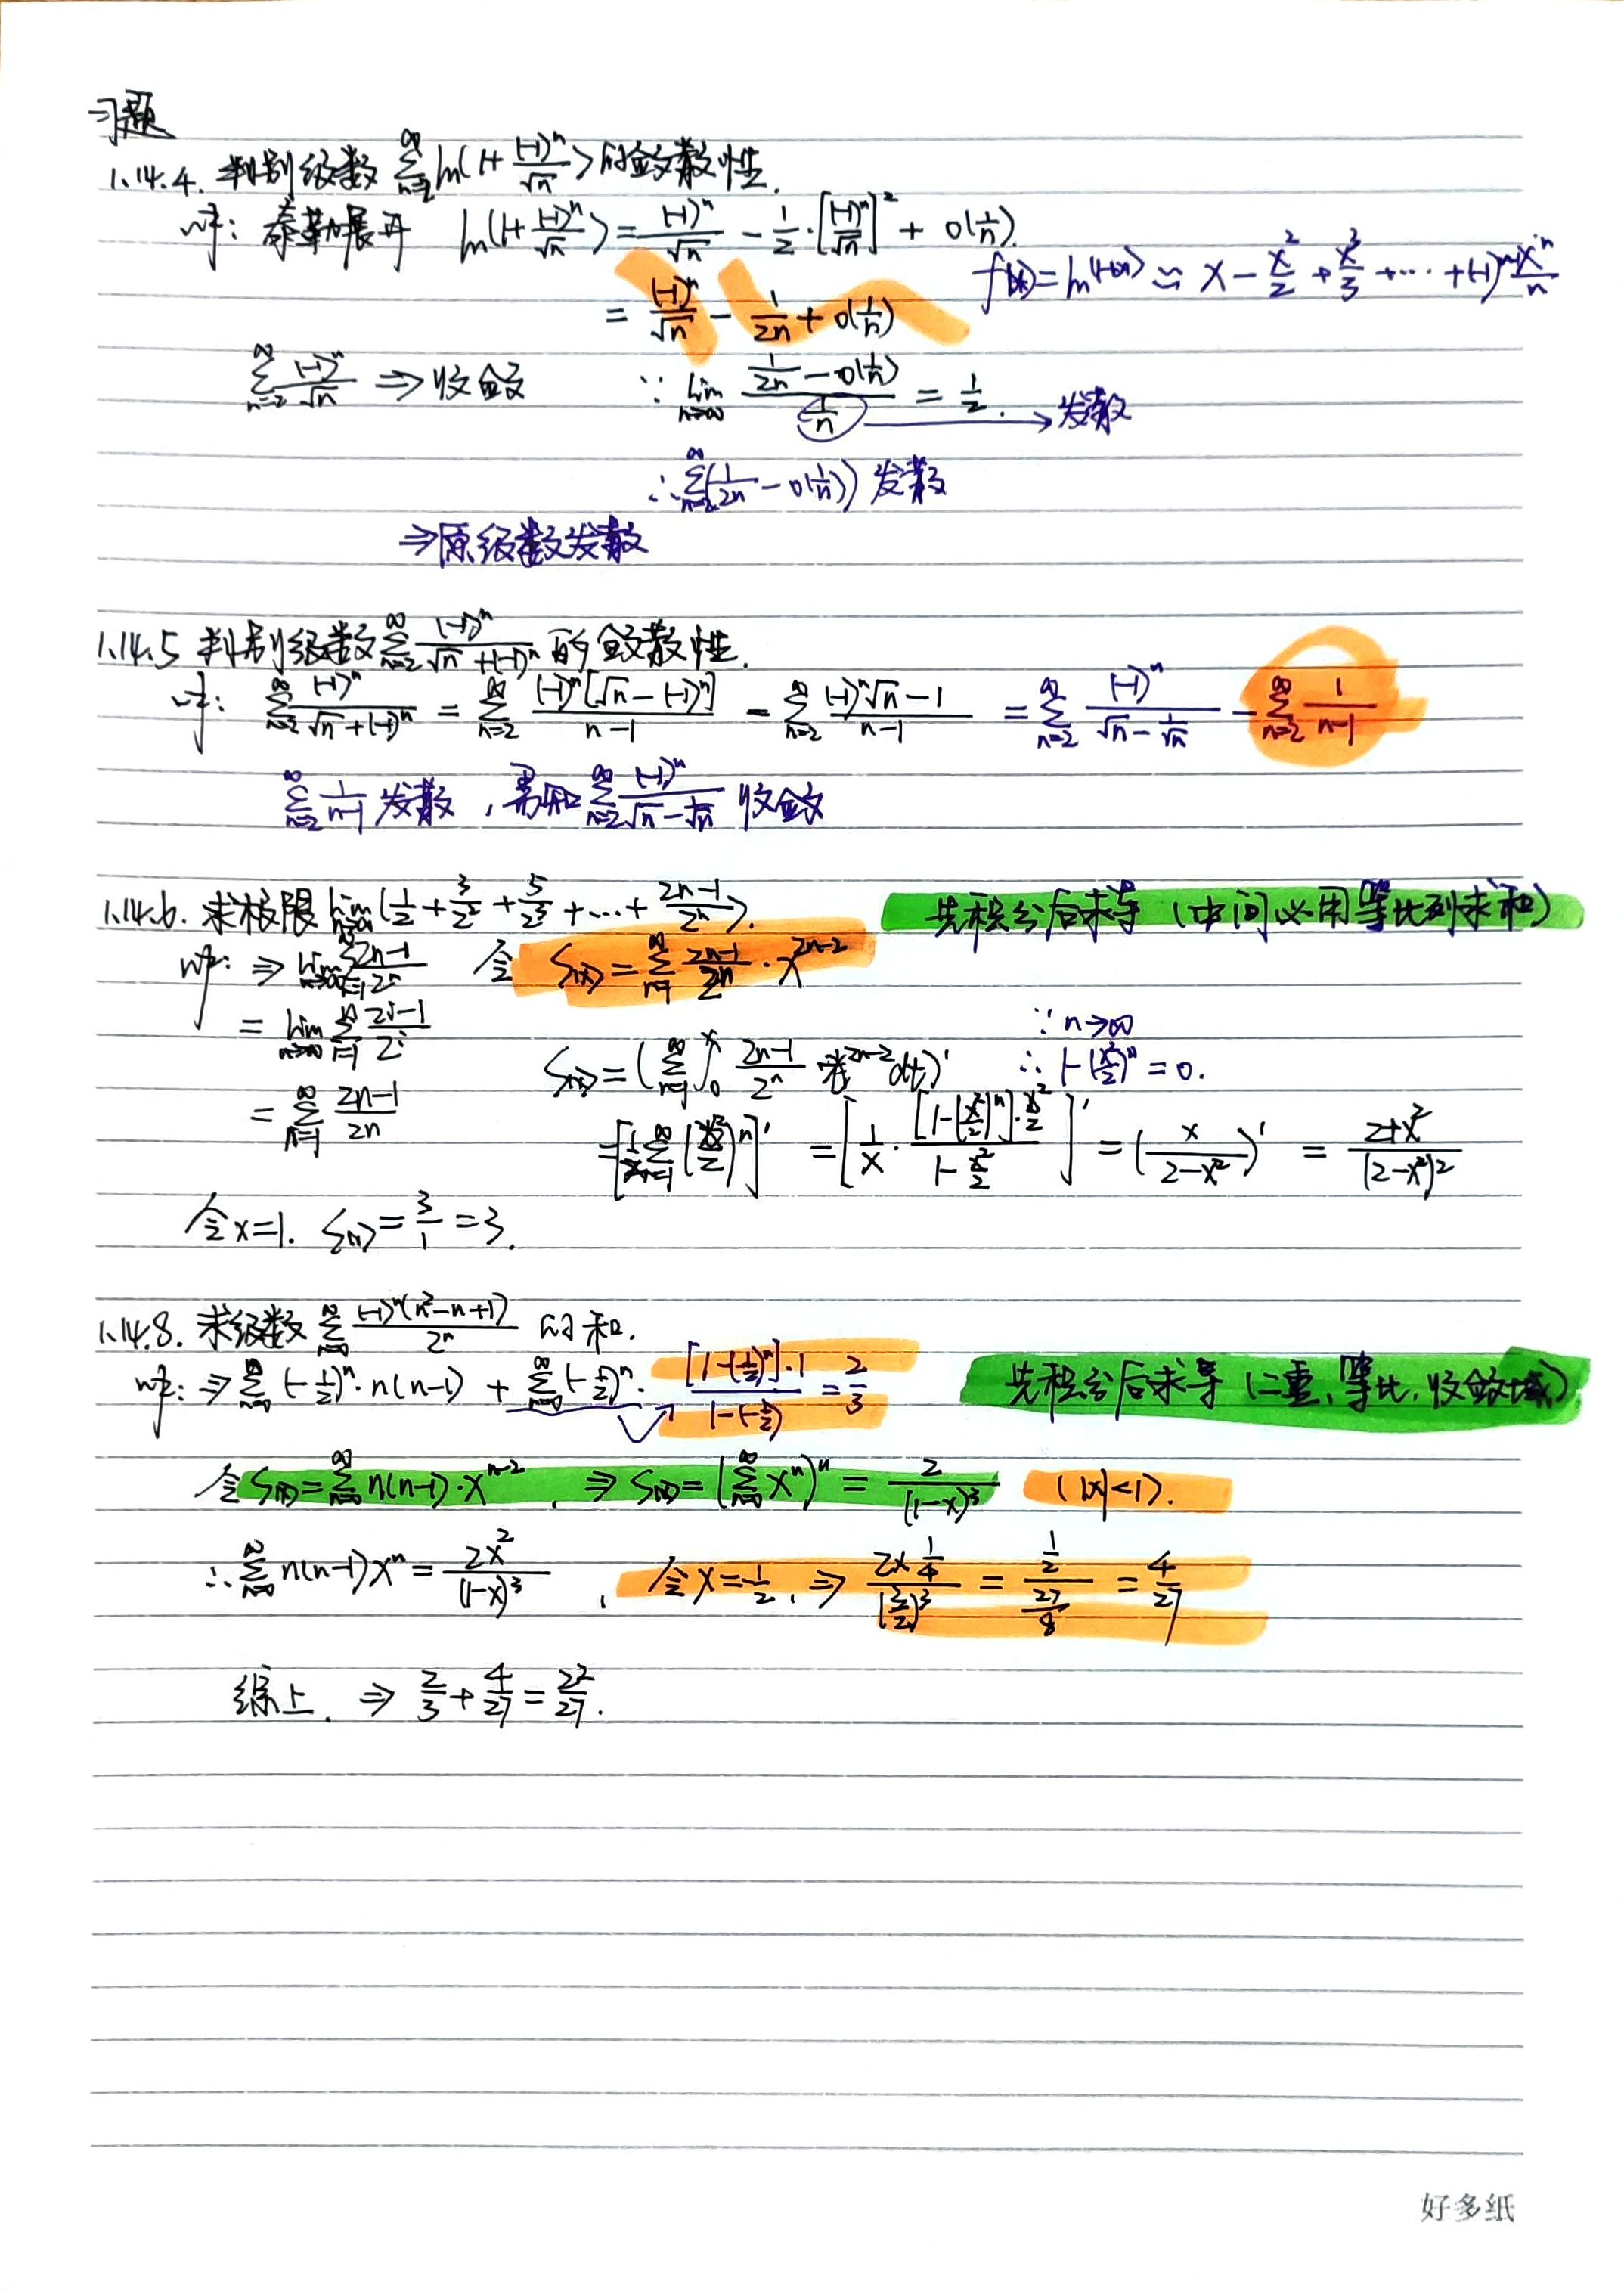 习题
1.14.4. 判别级数 ∑_{n=2}^{∞} ln(1+(-1)^n/√n) 的敛散性.
解: 泰勒展开 ln(1+(-1)^n/√n) = (-1)^n/√n - 1/2·[(-1)^n/√n]^2 + o(1/n).
f(x)=ln(1+x) ≈ x - x^2/2 + x^3/3 + … + (-1)^{n-1} x^n/n
= (-1)^n/√n - 1/2n + o(1/n)
∑_{n=2}^{∞} (-1)^n/√n ⇒ 收敛 ∵ lim_{n→∞} (1/2n - o(1/n))/(1/n) = 1/2. → 发散
∴ ∑_{n=2}^{∞} (1/2n - o(1/n)) 发散
⇒ 原级数发散
1.14.5 判别级数 ∑_{n=2}^{∞} (-1)^n/(√n+(-1)^n) 的敛散性.
解: ∑_{n=2}^{∞} (-1)^n/(√n+(-1)^n) = ∑_{n=2}^{∞} (-1)^n[√n-(-1)^n]/(n-1) = ∑_{n=2}^{∞} ((-1)^n√n-1)/(n-1) = ∑_{n=2}^{∞} (-1)^n/(√n-1/√n) - ∑_{n=2}^{∞} 1/(n-1)
∑_{n=2}^{∞} 1/(n-1) 发散, 易知 ∑_{n=2}^{∞} (-1)^n/(√n-1/√n) 收敛
1.14.6. 求极限 lim_{n→∞} (1/2 + 3/2^2 + 5/2^3 + … + (2n-1)/2^n). 先积分后求导 (中间必用等比列求和)
解: ⇒ lim_{n→∞} ∑_{i=1}^{n} (2n-1)/2^n 令 S(x) = ∑_{n=1}^{∞} (2n-1)/2^n · x^{2n-2}
= lim_{n→∞} ∑_{i=1}^{n} (2i-1)/2^i ∵ n→∞
S(x) = (∑_{n=1}^{∞} ∫_0^x (2n-1)/2^n t^{2n-2} dt)' ∴ 1-(x^2/2)^n = 0.
= ∑_{n=1}^{∞} (2n-1)/2n = [1/x ∑_{n=1}^{∞} (x^2/2)^n]' = [1/x · [1-(x^2/2)^n]·x^2/2 / (1-x^2/2)]' = (x/(2-x^2))' = (2+x^2)/(2-x^2)^2
令 x=1. S(1) = 3/1 = 3.
1.14.8. 求级数 ∑_{n=0}^{∞} (-1)^n(n^2-n+1)/2^n 的和.
解: ⇒ ∑_{n=0}^{∞} (-1/2)^n · n(n-1) + ∑_{n=0}^{∞} (-1/2)^n. [1-(-1/2)^n]·1/(1-(-1/2)) = 2/3 先积分后求导 (二重, 等比, 收敛域)
令 S(x) = ∑_{n=0}^{∞} n(n-1)·x^{n-2}, ⇒ S(x) = (∑_{n=0}^{∞} x^n)'' = 2/(1-x)^3 (|x|<1).
∴ ∑_{n=0}^{∞} n(n-1)x^n = 2x^2/(1-x)^3, 令 x=-1/2, ⇒ 2×1/4/(3/2)^3 = 1/2/27/8 = 4/27
综上, ⇒ 2/3 + 4/27 = 22/27.
好多纸